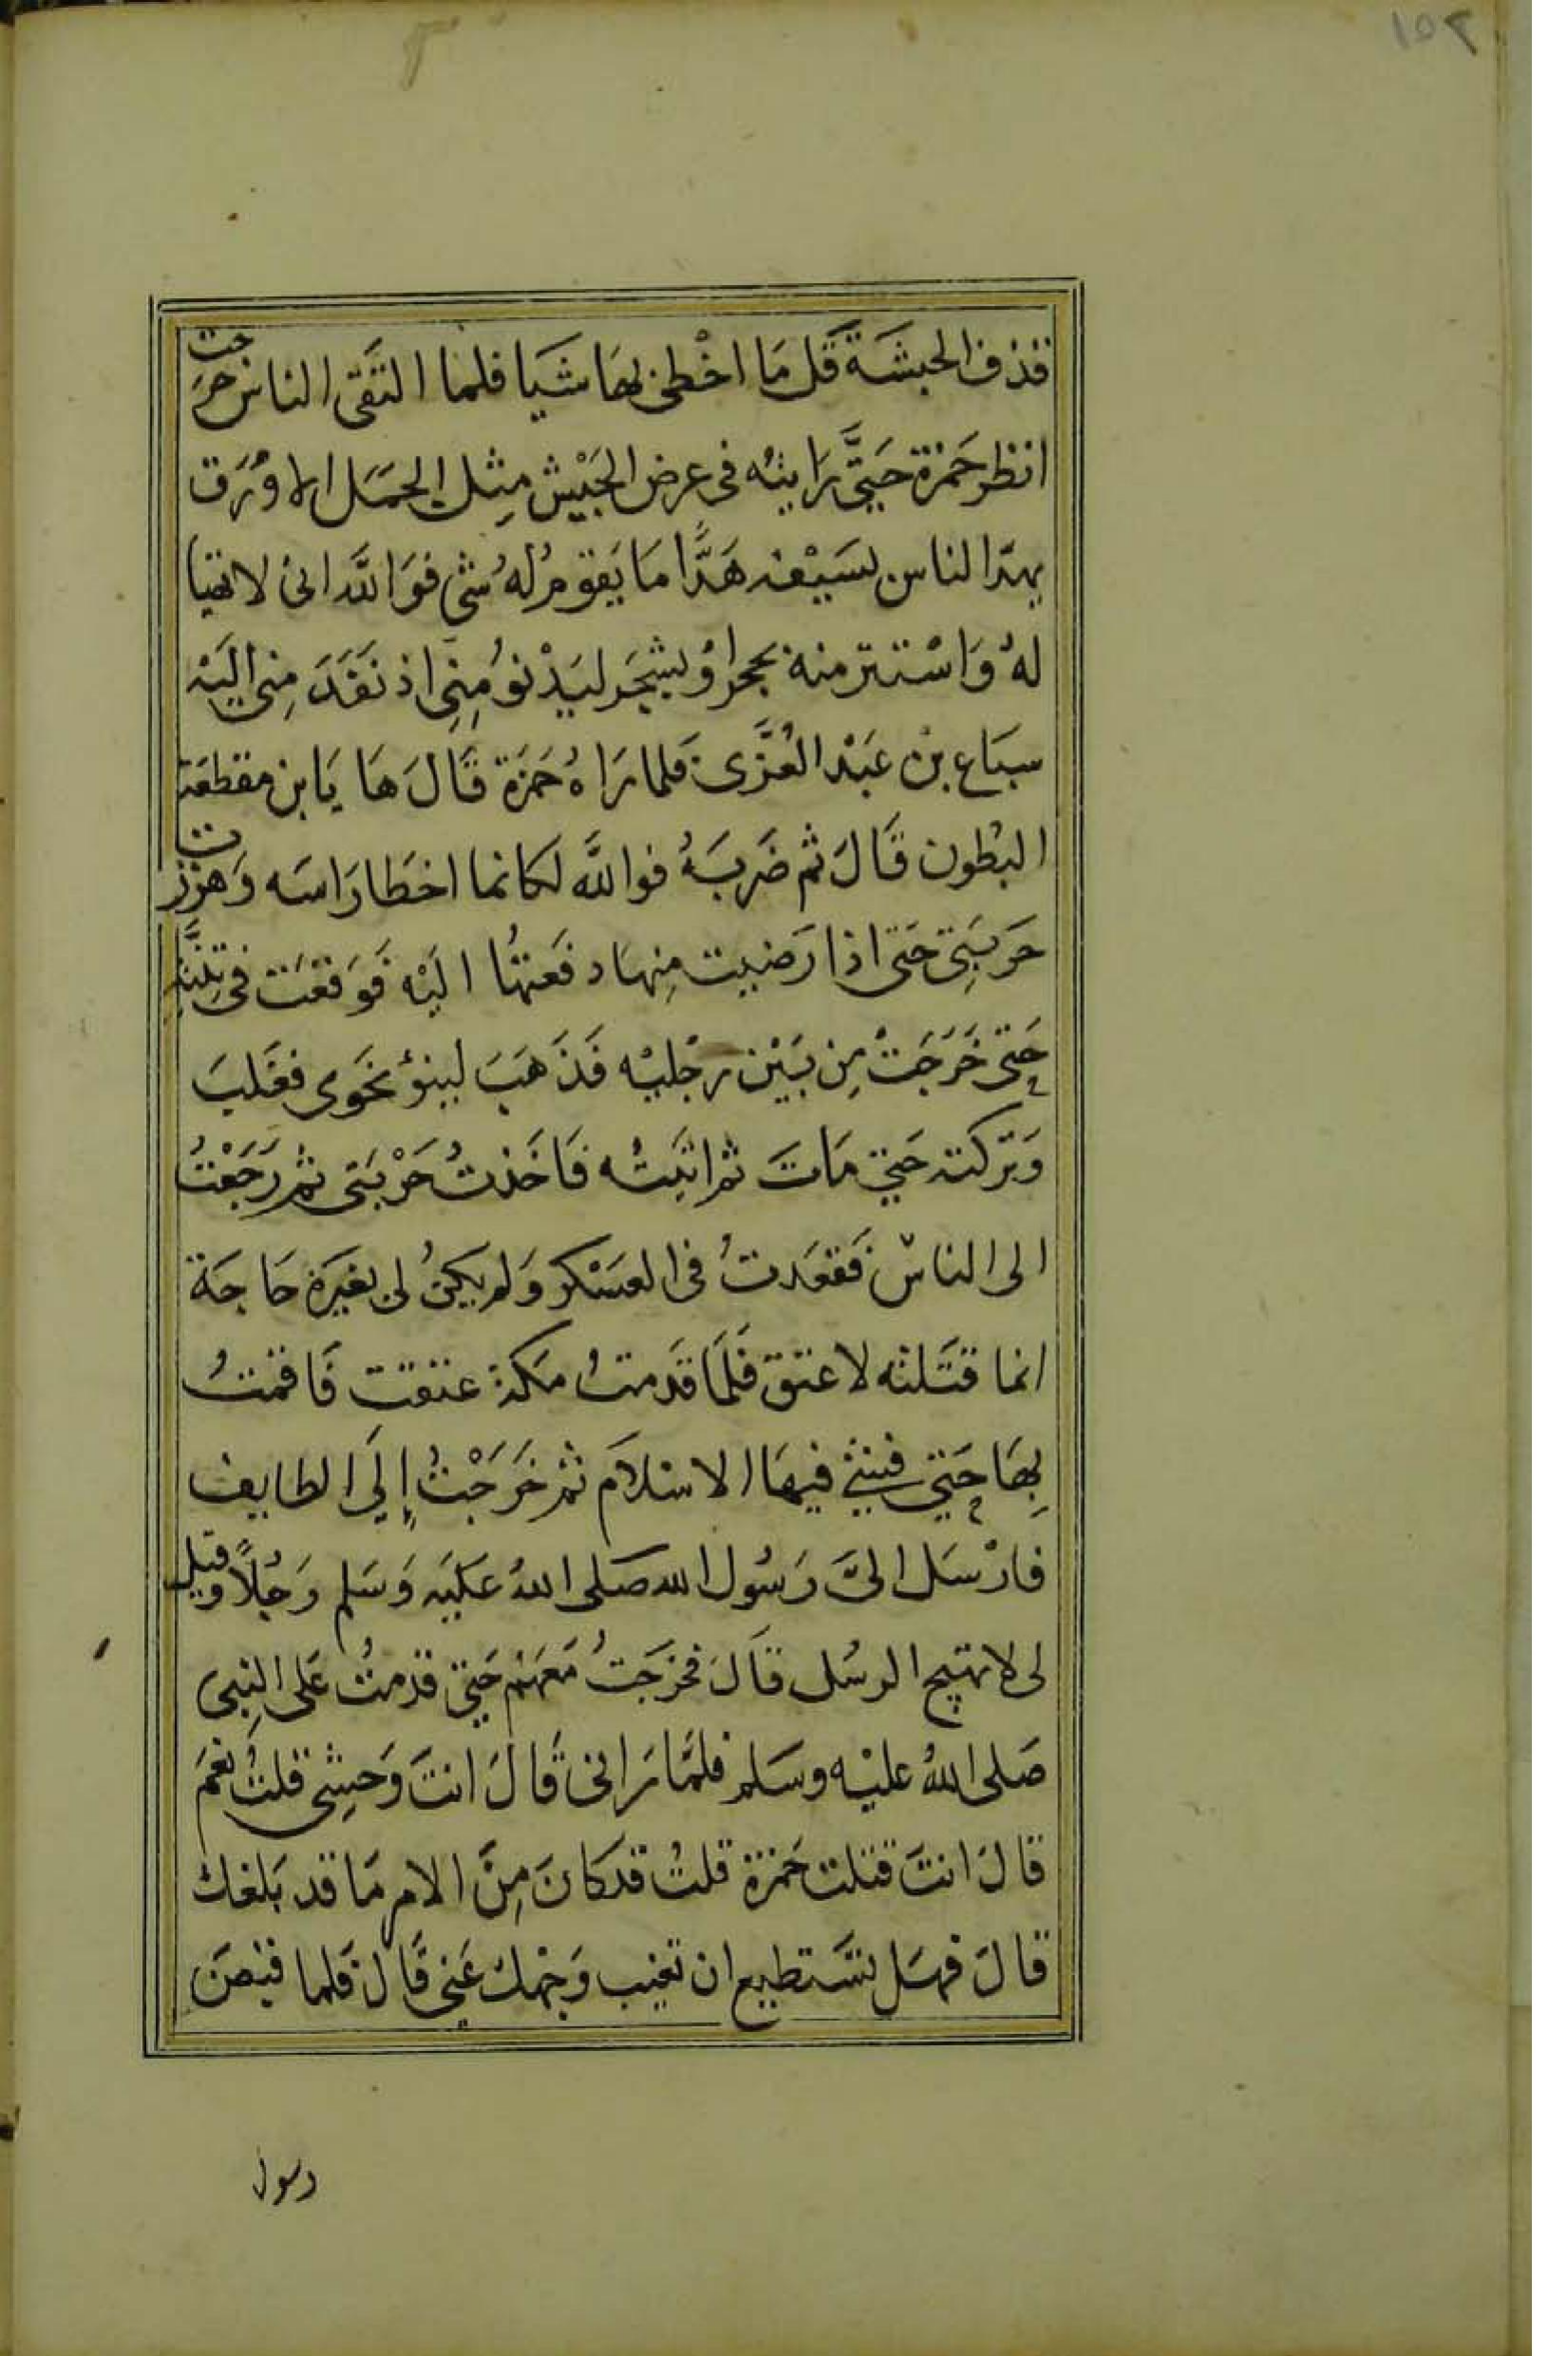 ١٥٢
قذف الحبشَة قَل مَا اخْطئ بهَا شَيا فلما التَقى الناس خرجت
انظر حَمزة حَتَّى رَايته فى عرض الجَيْش مِثل الجمَل الاوْرَق
يهدّ الناس بسَيْفه هَدًّا مَا يَقوم لهُ شى فوَ اللَّه انى لاتهيا
لهُ وَاسْتتر منه بحجر اوْ بشجَر ليَدْنوُ مِنِى اذ نَقَدَ مِنى اليَه
سبَاع بن عَبْد العُزَّى فلما رَاهُ حَمزَة قَالَ هَا يَا بن مقطعَة
البُطون قَالَ ثم ضَربَهُ فوالله لكانما اخطَا رَاسَه وَهززت
حَربَتِى حَتى اذا رَضيت مِنهَا دفَعتهُا اليْه فَوَقعَت فى ثِنَّته
حَتى خَرَجَتْ مِن بَيْن رجْليْه فَذَهَبَ لينوُ نحَوى فغَلبَ
وَتركته حَتي مَاتَ ثم اتيَتُه فَاخَذتُ حَرْبَتى ثم رَجَعْتُ
الى الناسْ فَقعَدتُ فى العسَكر وَلم يكنُ لى بغيرَه حَاجَة
انما قتَلته لاعتق فلَمَا قَدمتُ مكَة عتقت فَاقمتُ
بِهَا حَتي فشي فيهَا الاسْلامَ ثم خَرَجْتُ إلَي الطايف
فارْسَل الىَّ رَسُول الله صَلى اللهُ عَليَه وَسَلم رَجُلاً وقيل
لى لا تهيج الرسُل قَالَ فخرَجتُ مَعَهم حَتي قدمتُ عَلى النِبى
صَلى اللهُ عليْه وسَلم فلمَّا رَانى قَالَ انتَ وَحشِى قلتُ نعَم
قالَ انتَ قتلت حَمزة قلتُ قد كانَ مِنَ الامر مَا قد بَلغك
قالَ فهَل تسَتطيع ان تغيب وَجْهك عَني قَالَ فلما قبضَ
رسول